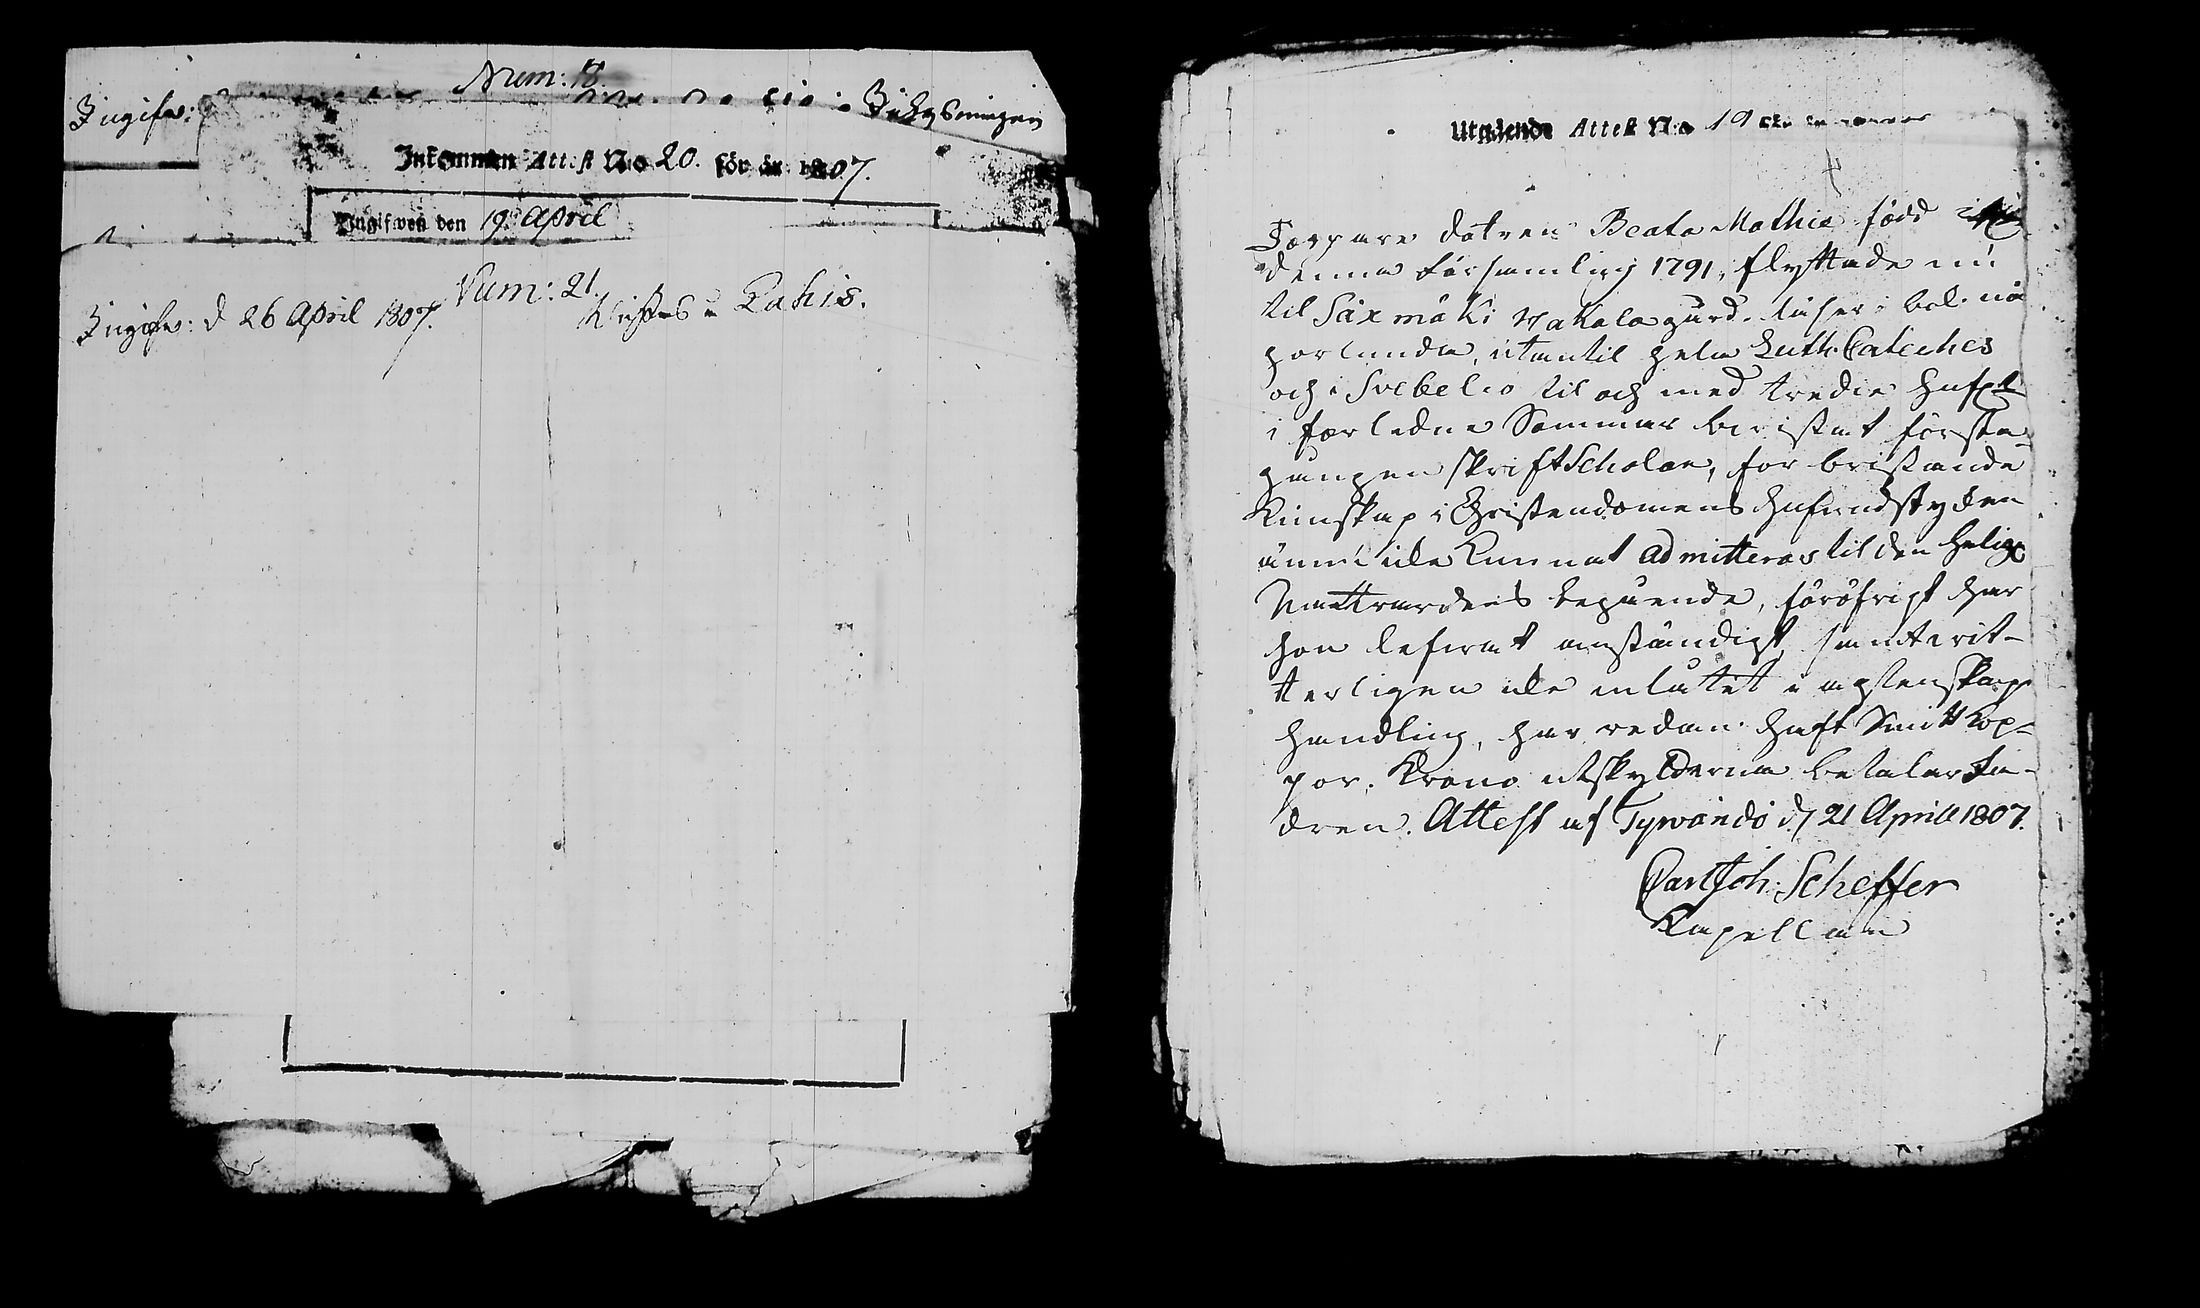 Num: 18.
Ingifv:
Inkommen Attest N:o 20. för år 1807.
Ingifven den 19 April
Num: 21.
Ingifv: d 26 April 1807. Vistas i Rahis.
Utgående Attest N:o 19
Torpare dotren Beata Mathie född i
denna Församling 1791, flyttade nu
til Säxmäki gård. läser i bok nå
gorlunda, utantil hela Luth. Cateches
och i Svebelio til och med tredie
i förledne Sommar bevistat första
gången skriftScholan, for bristande
Kunskap i Christendomens hufvudstycken
ännu icke kunnat admitteras til den Helige
Nattvardens begående, föröfrigt har
hon lefvat anständigt, samt vit-
terligen icke inlåtit i ägtenskaps
handling, har redan haft Smittkop-
por. Krono utskylderna betalar Fa-
dren. Attest af Tyrvändö d. 21 April 1807.
Carl Joh: Scheffer
Kapellan